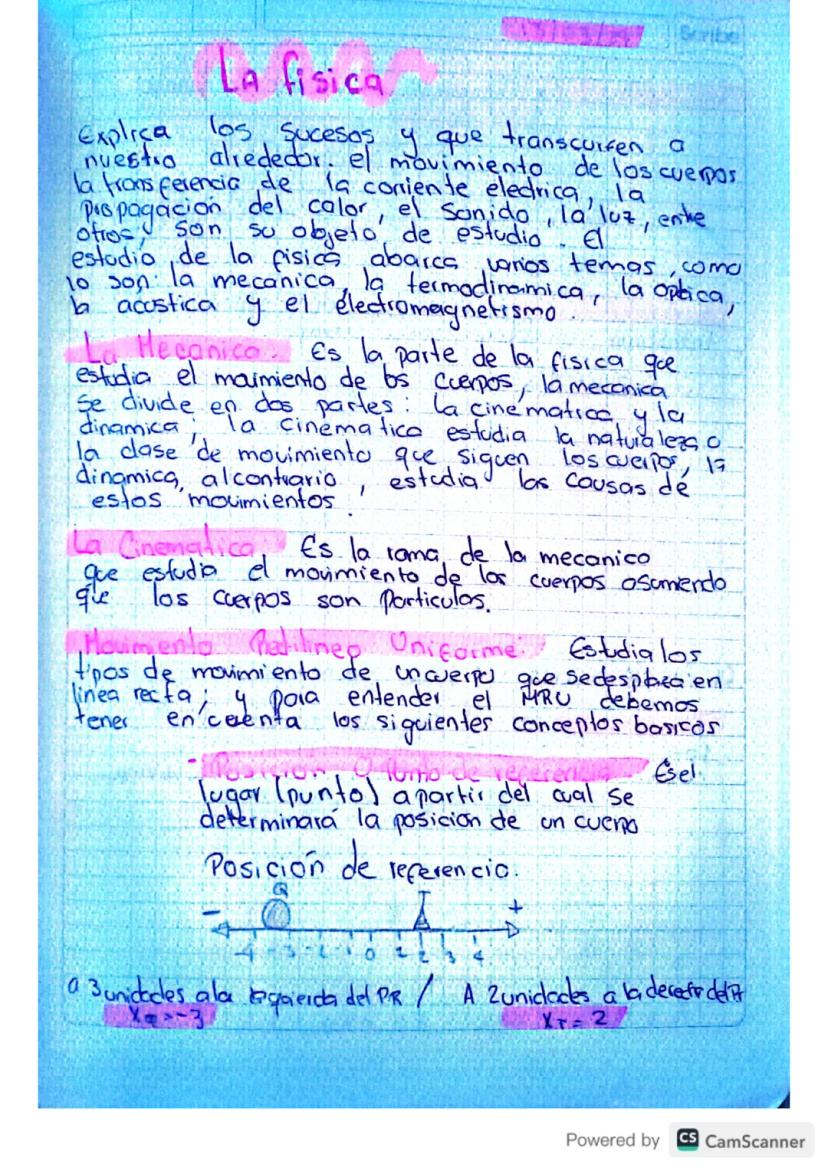 Scribe
La fisica
Explica los sucesos y que transcurren a
nuestro alrededor. el movimiento de los cuerpos
la transferencia de la corriente electrica, la
propagación del calor, el sonido, la luz, entre
otros, son su objeto de estudio. El
estudio de la fisica abarca varios temas, como
lo son: la mecánica, la termodinamica, la optica,
la acustica y el electromagnetismo.
La Mecanica. Es la parte de la fisica que
estudia el movimiento de los cuerpos, la mecanica
se divide en dos partes: La cinematica y la
dinamica; la cinematica estudia la naturaleza o
la clase de movimiento que siguen los cuerpos, la
dinamica, al contrario, estudia las causas de
estos movimientos.
La Cinematica. Es la rama de la mecanica
que estudia el movimiento de los cuerpos asumiendo
que los cuerpos son particulas.
Movimiento Rectilineo Uniforme: Estudia los
tipos de movimiento de un cuerpo que se desplaza en
linea recta; y para entender el MRU debemos
tener en cuenta los siguientes conceptos basicos
- Posicion O Punto de referencia. Es el
lugar (punto) a partir del cual se
determinará la posicion de un cuerpo
Posición de referencia.
Q
- +
-4 -3 -2 -1 0 1 2 3 4
a 3 unidades a la izquierda del PR / A 2 unidades a la derecha del
= -3 XT = 2
Powered by CS CamScanner